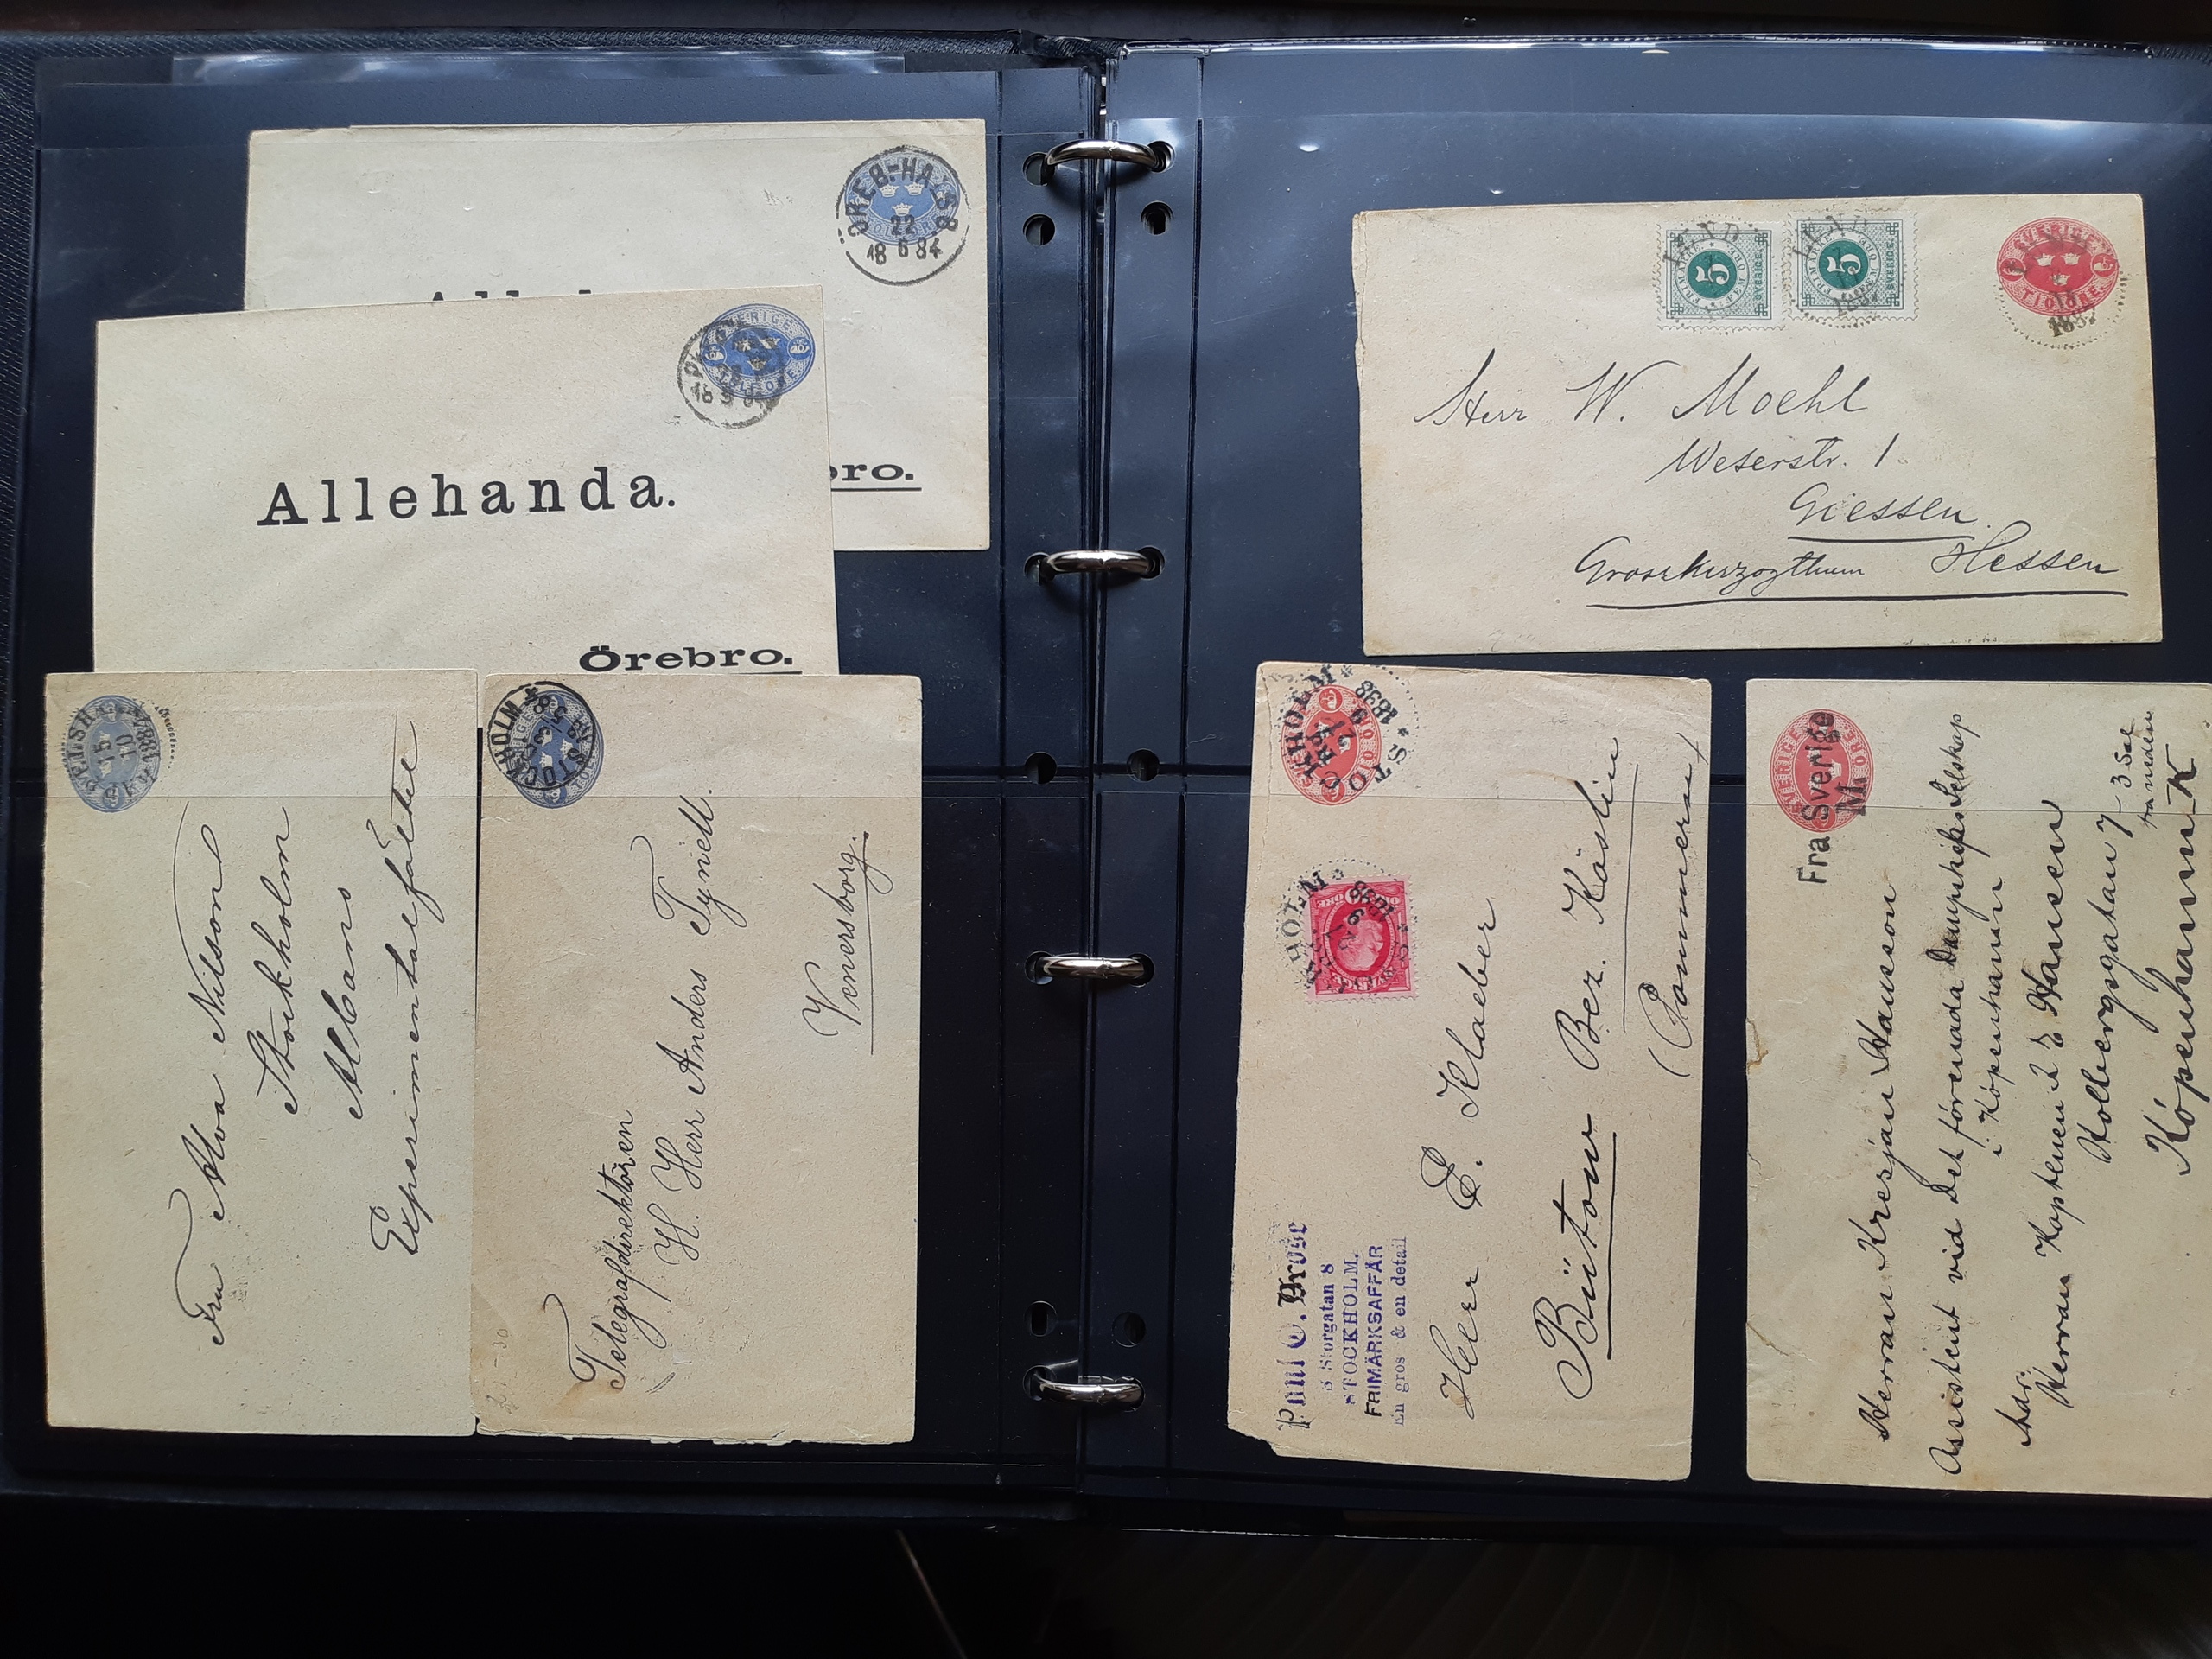 ÖREB-HALSB
22
18 6 84
bro.
SVERIGE.
TOLF ÖRE.
Allehanda.
Örebro.
15
10
188
Fru Alva Nilsson
Stockholm
Albano
Experimentalfältet
STOCKHOLM
Telegrafdirektören
H. Herr Anders Tyrell.
Venersborg.
LUND
5
SVERIGE.
LUND
5
SVERIGE.
SVERIGE
TIO ÖRE.
Herr W. Moehl
Weserstr. 1
Giessen.
Grossherzogthum Hessen
STOCKHOLM
1898
1898
Paul E. Drose
8 Storgatan 8
STOCKHOLM.
FRIMÄRKSAFFÄR
En gros & en detail
Herr E. Klaeber
Bütow Bez. Köslin
(Pommern)
Fra Sverige
M.
Herran Kresjan Hansson
Assistent vid Det förenada Dampskips Selskap
i Köpenhamn
Adr.
Herran Kaptenen
Hansen
Kolbergsgatan 7
Köpenhamn K